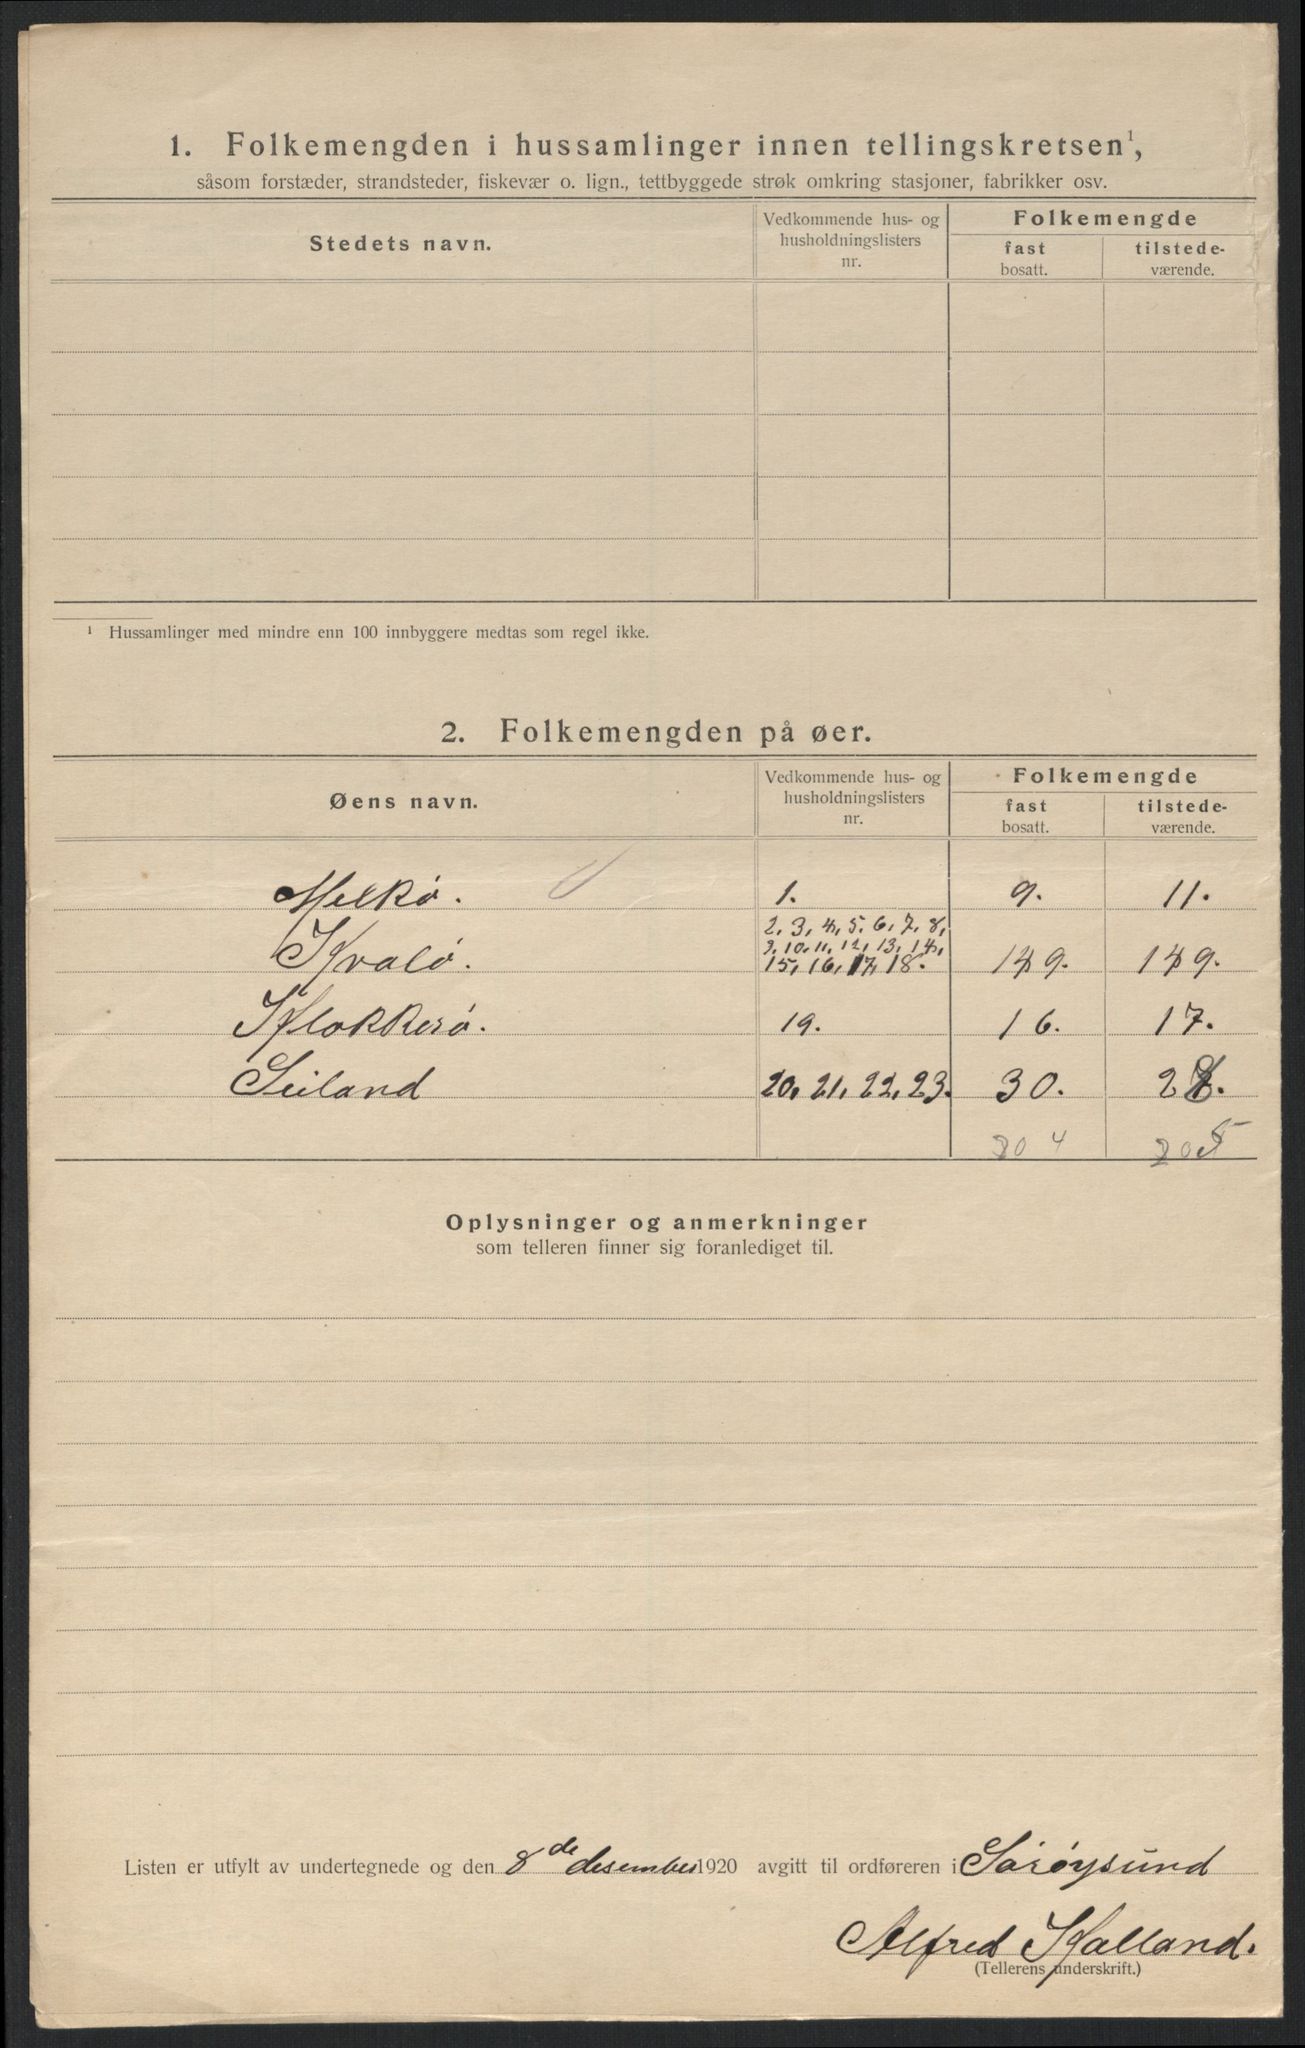 1. Folkemengden i hussamlinger innen tellingskretsen¹,
såsom forstæder, strandsteder, fiskevær o. lign., tettbyggede strøk omkring stasjoner, fabrikker osv.
Stedets navn.
Vedkommende hus- og husholdningslisters nr.
Folkemengde
fast bosatt.
tilstede-værende.
¹ Hussamlinger med mindre enn 100 innbyggere medtas som regel ikke.
2. Folkemengden på øer.
Øens navn.
Vedkommende hus- og husholdningslisters nr.
Folkemengde
fast bosatt.
tilstede-værende.
Melkø. 1. 9. 11.
2, 3, 4, 5. 6, 7, 8,
9, 10, 11, 12, 13, 14,
Kvalø. 15, 16, 17, 18. 149. 149.
Klokkerø. 19. 16. 17.
Seiland 20, 21, 22, 23. 30. 28.
204 205
Oplysninger og anmerkninger
som telleren finner sig foranlediget til.
Listen er utfylt av undertegnede og den 8de desember 1920 avgitt til ordføreren i Sørøysund
Alfred Halland.
(Tellerens underskrift.)